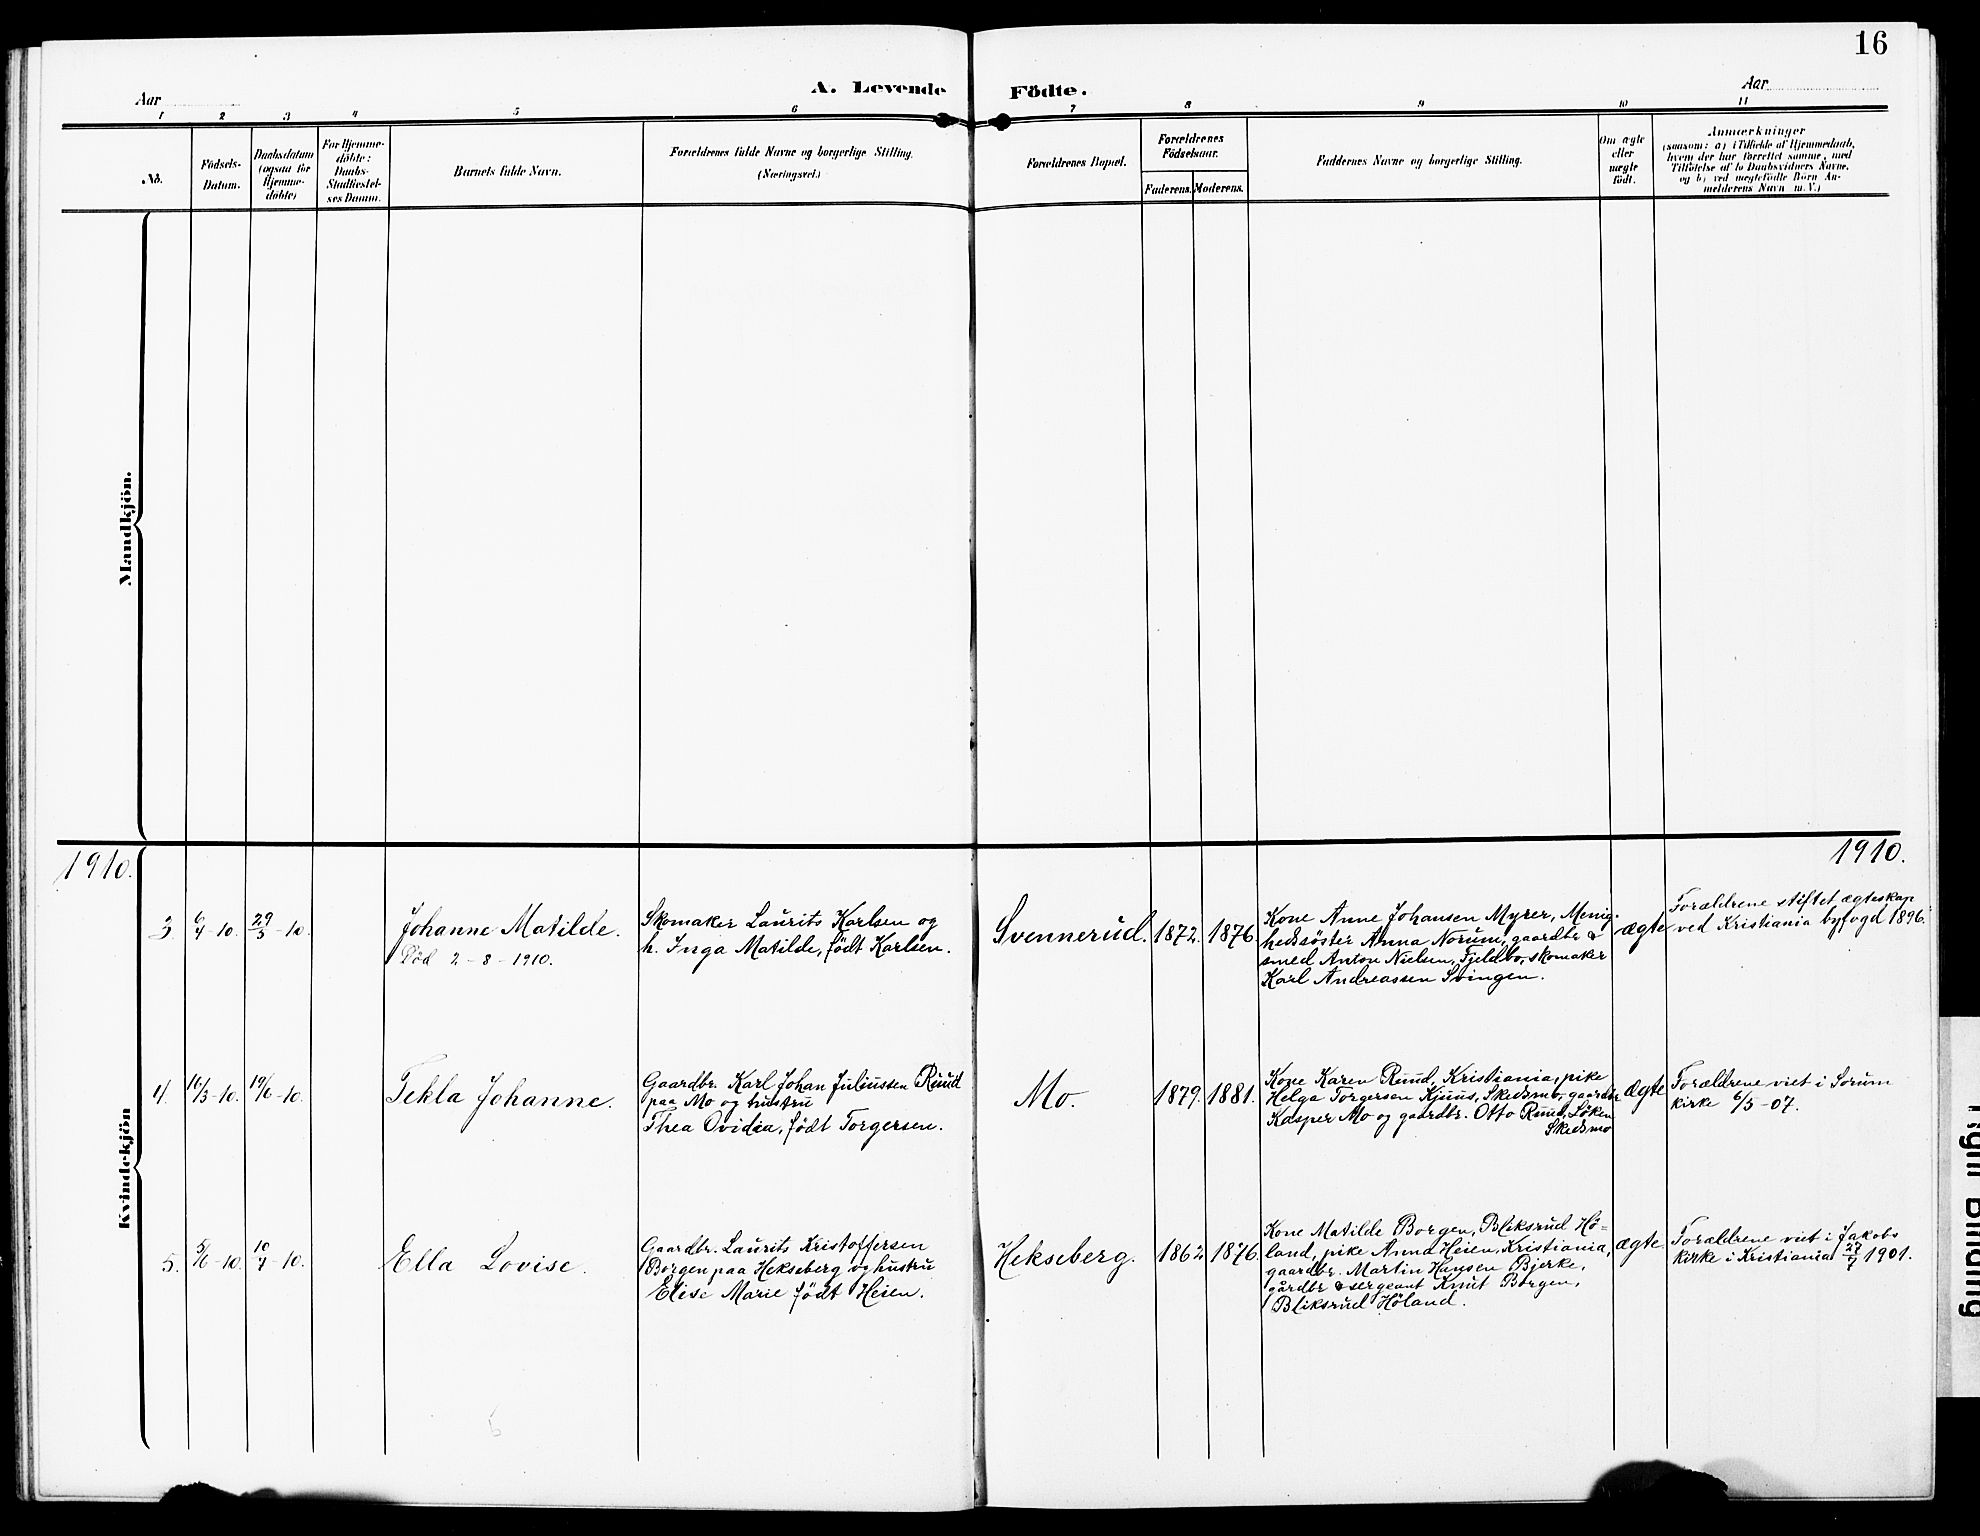 16
Aar
A. Levende Födte.
Aar
1 2 3 4 5 6 7 8 9 10 11
No.
Födsels-
Datum.
Daabsdatum
(ogsaa for
Hjemme-
döbte)
For Hjemme-
döbte:
Daabs-
Stadfæstel-
ses Datum.
Barnets fulde Navn.
Forældrenes fulde Navne og borgerlige Stilling.
(Næringsvei.)
Forældrenes Bopæl.
Forældrenes
Födselsaar.
Faderens. Moderens.
Faddernes Navne og borgerlige Stilling.
Om ægte
eller
uægte
födt.
Anmærkninger
(saasom: a) i Tilfælde af Hjemmedaab,
hvem der har forrettet samme, med
Tilföielse af to Daabsvidners Navne,
og b) ved uægtefödte Börn An-
melderens Navn m. V.)
Mandkjön.
1910.
1910.
Kvindekjön
3.
6/4-10.
29/5-10.
Johanne Matilde.
Död 2-8-1910.
Skomaker Laurits Karlsen og
h. Inga Matilde, født Karlsen.
Svennerud.
1872.
1876.
Kone Anne Johansen Myrer, Menig-
hedssöster Anna Norum, gaardbr &
smed Anton Nielsen, Fjeldbo, skomaker
Karl Andreassen Svingen.
ægte
Forældrene stiftet ægteskap
ved Kristiania byfogd 1896.
4.
16/3-10.
19/6-10.
Tekla Johanne.
Gaardbr. Karl Johan Juliussen Ruud
paa Mo og hustru
Thea Ovidia, født Torgersen.
Mo.
1879.
1881.
Kone Karen Ruud, Kristiania, pike
Helga Torgersen Kjuus, Skedsmo, gaardbr
Kasper Mo og gaardbr. Otto Ruud, Løken
Skedsmo
ægte
Forældrene viet i Sørum
kirke 6/5-07.
5.
5/6-10.
10/7-10.
Ella Lovise.
Gaardbr. Laurits Kristoffersen
Borgen paa Hekseberg og hustru
Elise Marie født Heien.
Hekseberg.
1862
1876.
Kone Matilde Borgen, Bliksrud Hö-
land, pike Anna Heien, Kristiania,
gaardbr. Martin Hansen Bjerke,
gårdbr & sergeant Knut Borgen,
Bliksrud Høland.
ægte
Forældrene viet i Jakobs
kirke i Kristiania 27/7 1901.